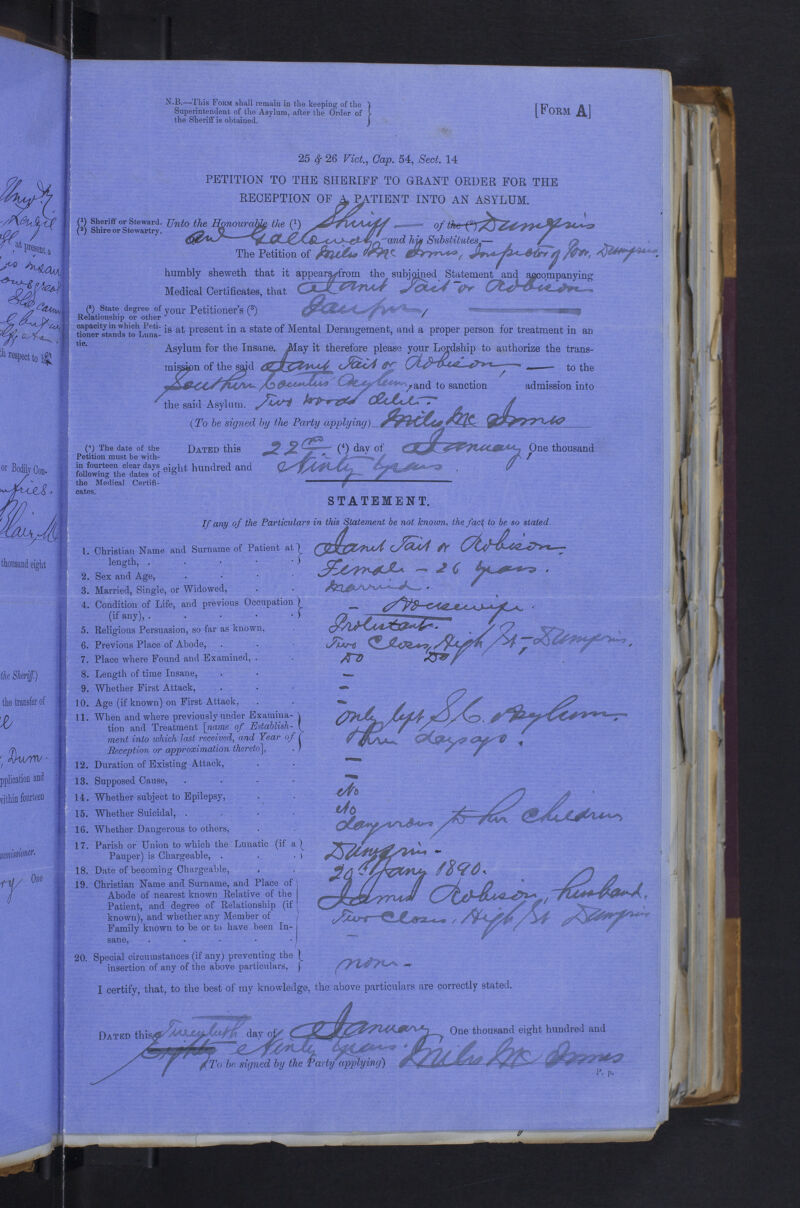 N.B.—This Form shall remain in the keeping of the
Superintendent of the Asylum, after the Order of
the Sheriff is obtained.
[Form A]
25 & 26 Vict., Cap. 54, Sect. 14
PETITION TO THE SHERIFF TO GRANT ORDER FOR THE
RECEPTION OF A PATIENT INTO AN ASYLUM.
(1) Sheriff or Steward.
(2) Shire or Stewartry.
Unto the Honourable the (1) Sheriff — of the (2) Dumfries
and Galloway and his Substitutes,—
The Petition of Miles McInnes, Inspector of Poor, Dumfries.
humbly sheweth that it appears from the subjoined Statement and accompanying
Medical Certificates, that Janet Tait or Robison
(3) State degree of
Relationship or other
capacity in which Peti-
tioner stands to Luna-
tic.
your Petitioner's (3) Pauper,
is at present in a state of Mental Derangement, and a proper person for treatment in an
Asylum for the Insane. May it therefore please your Lordship to authorize the trans-
mission of the said Janet Tait or Robison, — to the
Southern Counties Asylum, and to sanction admission into
the said Asylum. Two words delete.
(To be signed by the Party applying) Miles McInnes
(4) The date of the
Petition must be with-
in fourteen clear days
following the dates of
the Medical Certifi-
cates.
Dated this 22nd (4) day of January, One thousand
eight hundred and Ninty years.
STATEMENT.
If any of the Particulars in this Statement be not known, the fact to be so stated.
1. Christian Name and Surname of Patient at length, Janet Tait or Robison.
2. Sex and Age, Female – 26 years.
3. Married, Single, or Widowed, Married.
4. Condition of Life, and previous Occupation (if any), – Housewife.
5. Religious Persuasion, so far as known, Protestant.
6. Previous Place of Abode, Two Closes, High St, Dumfries.
7. Place where Found and Examined, Do Do
8. Length of time Insane, –
9. Whether First Attack, –
10. Age (if known) on First Attack, –
11. When and where previously under Examina-
tion and Treatment [name of Establish-
ment into which last received, and Year of
Reception or approximation thereto],
only left S.C. Asylum
three days ago.
12. Duration of Existing Attack, –
13. Supposed Cause, –
14. Whether subject to Epilepsy, No
15. Whether Suicidal, No
16. Whether Dangerous to others, dangerous to her children
17. Parish or Union to which the Lunatic (if a Pauper) is Chargeable, Dumfries –
18. Date of becoming Chargeable, 20th Jany 1890.
19. Christian Name and Surname, and Place of
Abode of nearest known Relative of the
Patient, and degree of Relationship (if
known), and whether any Member of
Family known to be or to have been In-
sane,
James Robison, husband.
Two Closes, High St Dumfries
–
20. Special circumstances (if any) preventing the
insertion of any of the above particulars, none –
I certify, that, to the best of my knowledge, the above particulars are correctly stated.
Dated this Twentieth day of January One thousand eight hundred and
Eighty Ninty years.
(To be signed by the Party applying) Miles McInnes
P. p.
at present a
is insan
th respect to
or Bodily Con-
thousand eight
the Sheriff.)
the transfer of
Dum-
pplication and
within fourteen
ommissioner.
ry One